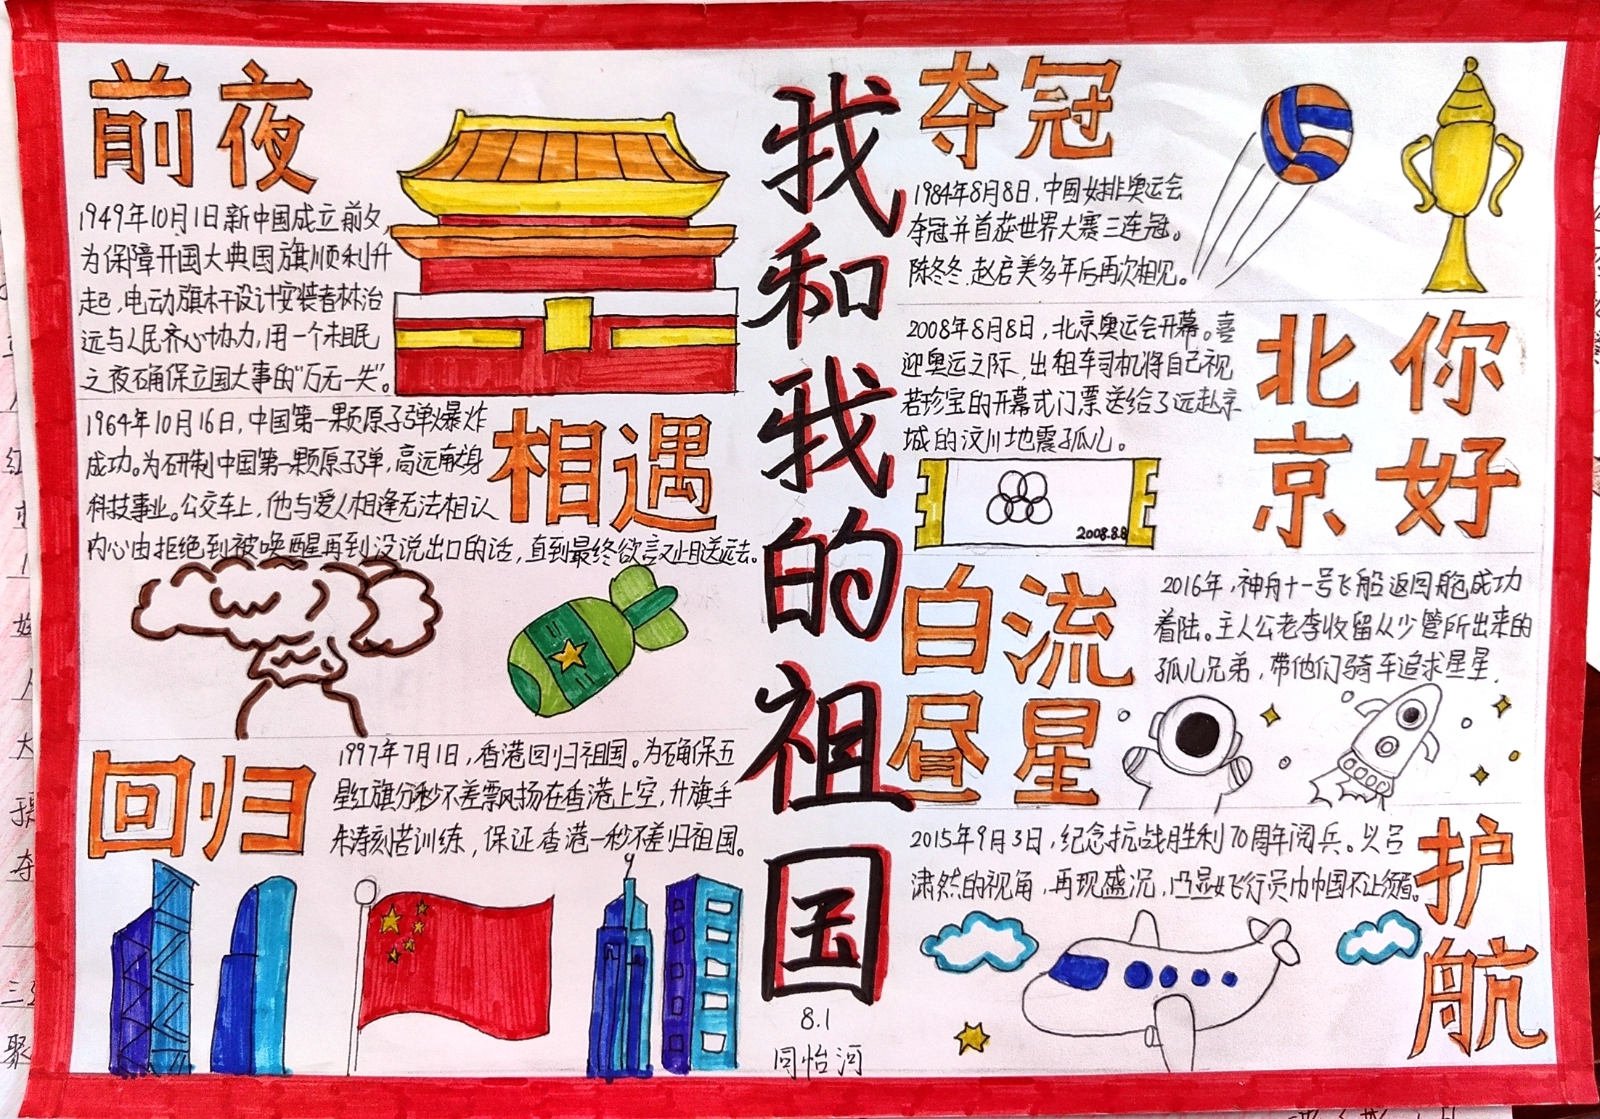 我和我的祖国
8.1
闫怡河
前夜
1949年10月1日新中国成立前夕,
为保障开国大典国旗顺利升
起,电动旗杆设计安装者林治
远与人民齐心协力,用一个未眠
之夜确保立国大事的“万无一失”。
1964年10月16日,中国第一颗原子弹爆炸
成功。为研制中国第一颗原子弹,高远献身
科技事业。公交车上,他与爱人相逢无法相认
内心由拒绝到被唤醒再到没说出口的话,直到最终欲言又止目送远去。
相遇
回归
1997年7月1日,香港回归祖国。为确保五
星红旗分秒不差飘扬在香港上空,升旗手
朱涛刻苦训练,保证香港一秒不差归祖国。
夺冠
1984年8月8日,中国女排奥运会
夺冠并首获世界大赛三连冠。
陈冬冬.赵启美多年后再次相见。
2008年8月8日,北京奥运会开幕。喜
迎奥运之际,出租车司机将自己视
若珍宝的开幕式门票送给了远赴京
城的汶川地震孤儿。
北京
你好
2008.8.8
白昼
流星
2016年,神舟十一号飞船返回舱成功
着陆。主人公老李收留从少管所出来的
孤儿兄弟,带他们骑车追求星星.
2015年9月3日,纪念抗战胜利70周年阅兵。以吕
潇然的视角,再现盛况,凸显女飞行员巾帼不让须眉。
护航